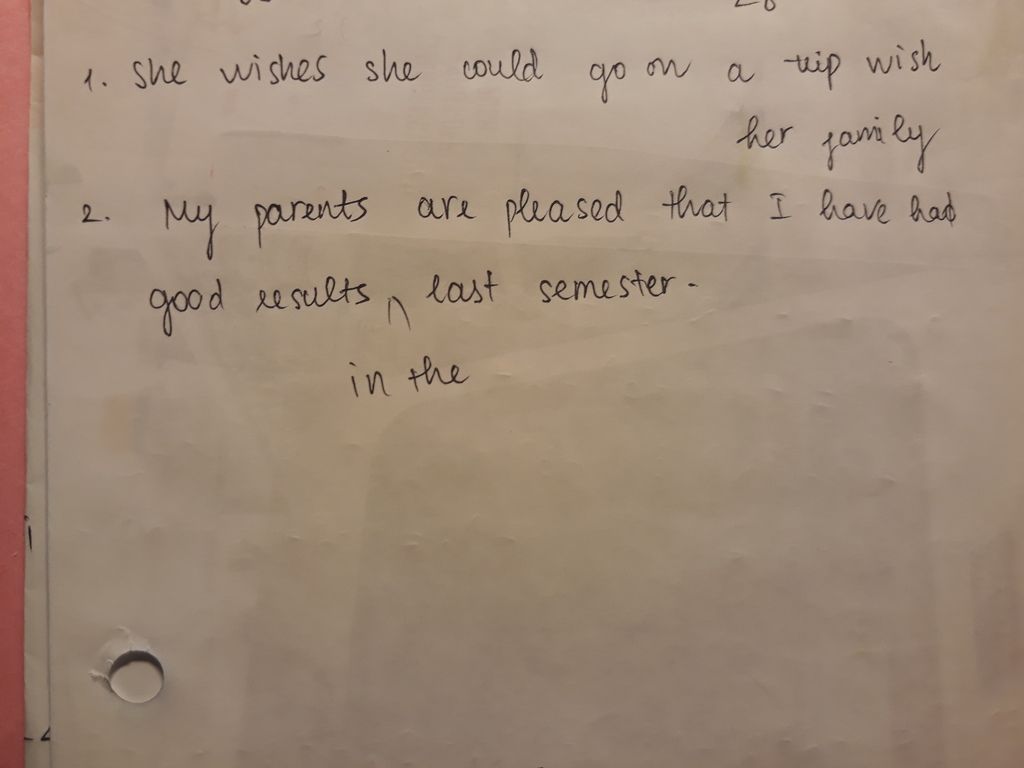 1. She wishes she could go on a trip wish
her family
2. My parents are pleased that I have had
good results ^ last semester.
in the